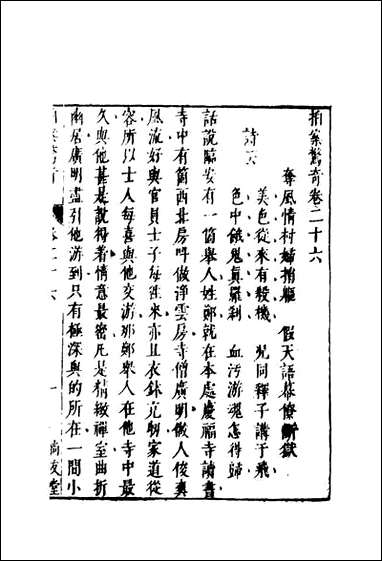 拍案驚奇卷二十六
奪風情村婦捐軀　假天語幕僚斷獄
詩云
美色從來有殺機　況同釋子講于飛
色中餓鬼真羅剎　血污游魂怎得歸
話說臨安有一箇舉人姓鄭就在本處慶福寺讀書
寺中有箇西北房叫做淨雲房寺僧廣明做人俊爽
風流好與官員士子每往來亦且衣鉢充牣家道從
容所以士人每喜與他交游那鄭舉人在他寺中最
久與他甚是說得着情意最密凡是精緻禪室曲折
幽居廣明盡引他游到只有極深奧的所在一間小
尚友堂